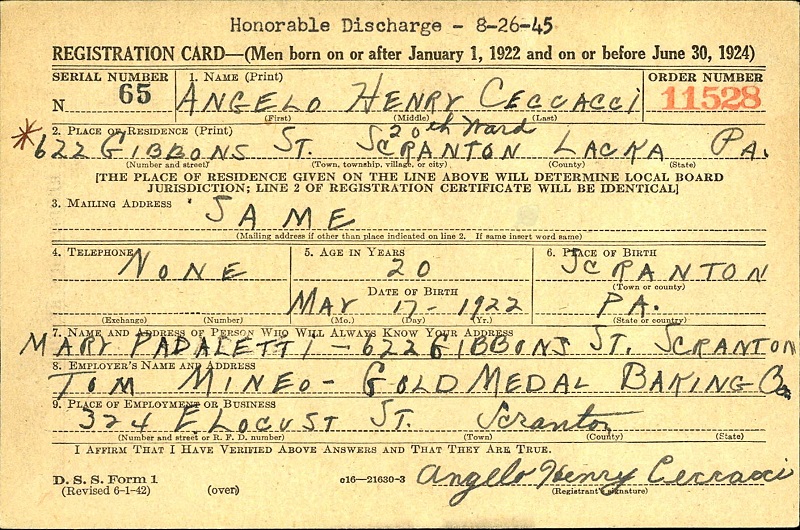 Honorable Discharge - 8-26-45
REGISTRATION CARD—(Men born on or after January 1, 1922 and on or before June 30, 1924)
SERIAL NUMBER 1. NAME (Print) ORDER NUMBER
N 65 ANGELO HENRY CECCACCI 11528
(First) (Middle) (Last)
2. PLACE OF RESIDENCE (Print) 20th Ward
*622 GIBBONS ST. SCRANTON LACKA PA.
(Number and street) (Town, township, village, or city) (County) (State)
[THE PLACE OF RESIDENCE GIVEN ON THE LINE ABOVE WILL DETERMINE LOCAL BOARD
JURISDICTION; LINE 2 OF REGISTRATION CERTIFICATE WILL BE IDENTICAL]
3. MAILING ADDRESS
SAME
(Mailing address if other than place indicated on line 2. If same insert word same)
4. TELEPHONE 5. AGE IN YEARS 6. PLACE OF BIRTH
NONE 20 SCRANTON
(Town or county)
DATE OF BIRTH
MAY 17- 1922 PA.
(Exchange) (Number) (Mo.) (Day) (Yr.) (State or country)
7. NAME AND ADDRESS OF PERSON WHO WILL ALWAYS KNOW YOUR ADDRESS
MARY PADALETTI - 622 GIBBONS ST. SCRANTON
8. EMPLOYER'S NAME AND ADDRESS
TOM MINEO - GOLD MEDAL BAKING Co.
9. PLACE OF EMPLOYMENT OR BUSINESS
324 E. LOCUST ST. Scranton
(Number and street or R. F. D. number) (Town) (County) (State)
I AFFIRM THAT I HAVE VERIFIED ABOVE ANSWERS AND THAT THEY ARE TRUE.
D. S. S. Form 1
(Revised 6-1-42) (over) c16—21630-3 Angelo Henry Ceccacci
(Registrant's signature)